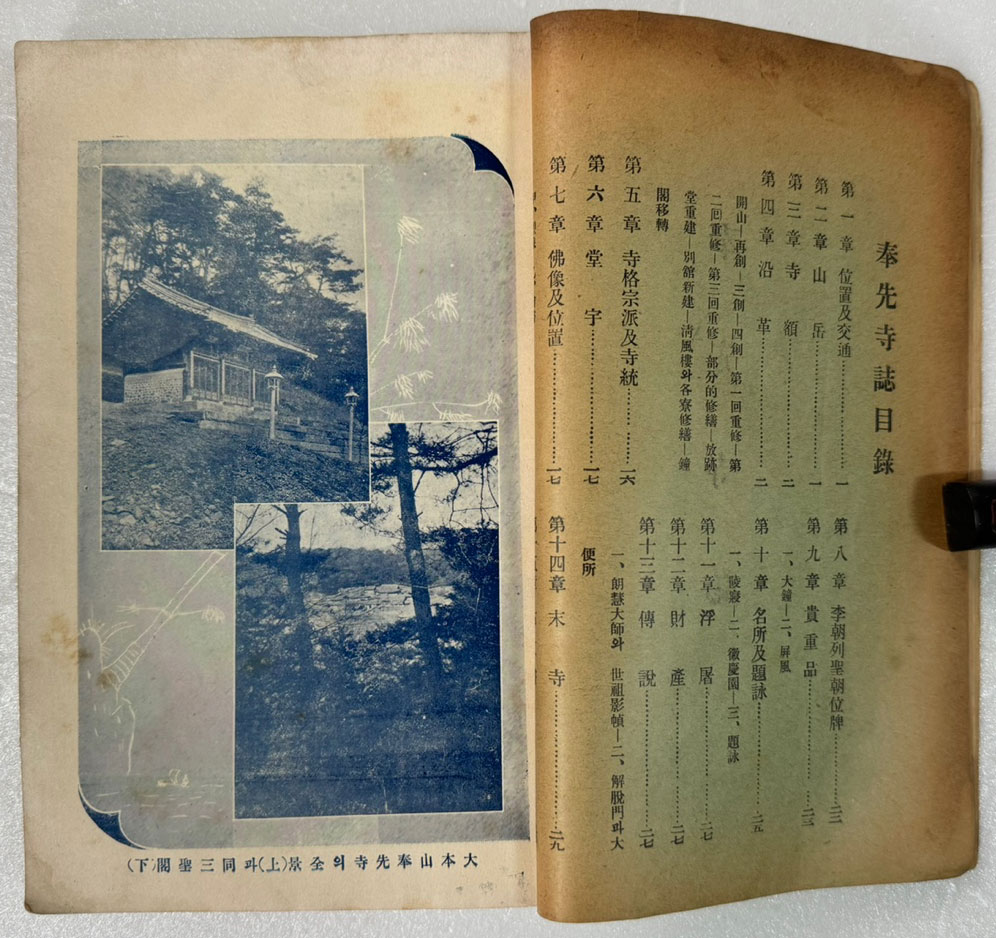 奉先寺誌目錄
第一章 位置及交通……………一
第二章 山岳……………一
第三章 寺額……………二
第四章 沿革……………二
開山—再創—三創—四創—第一回重修—第
二回重修—第三回重修—部分的修繕—放跡
堂重建—別館新建—淸風樓와各寮修繕—鐘
閣移轉
第五章 寺格宗派及寺統……………一六
第六章 堂宇……………一七
第七章 佛像及位置……………一七
第八章 李朝列聖朝位牌……………二三
第九章 貴重品……………二三
一、大鐘—二、屏風
第十章 名所及題詠……………二五
一、陵寢—二、徽慶園—三、題詠
第十一章 浮屠……………二七
第十二章 財產……………二七
第十三章 傳說……………二七
一、朗慧大師와 世祖影幀—二、解脫門과大
便所
第十四章 末寺……………二九
大本山奉先寺의全景(上)과同三聖閣(下)